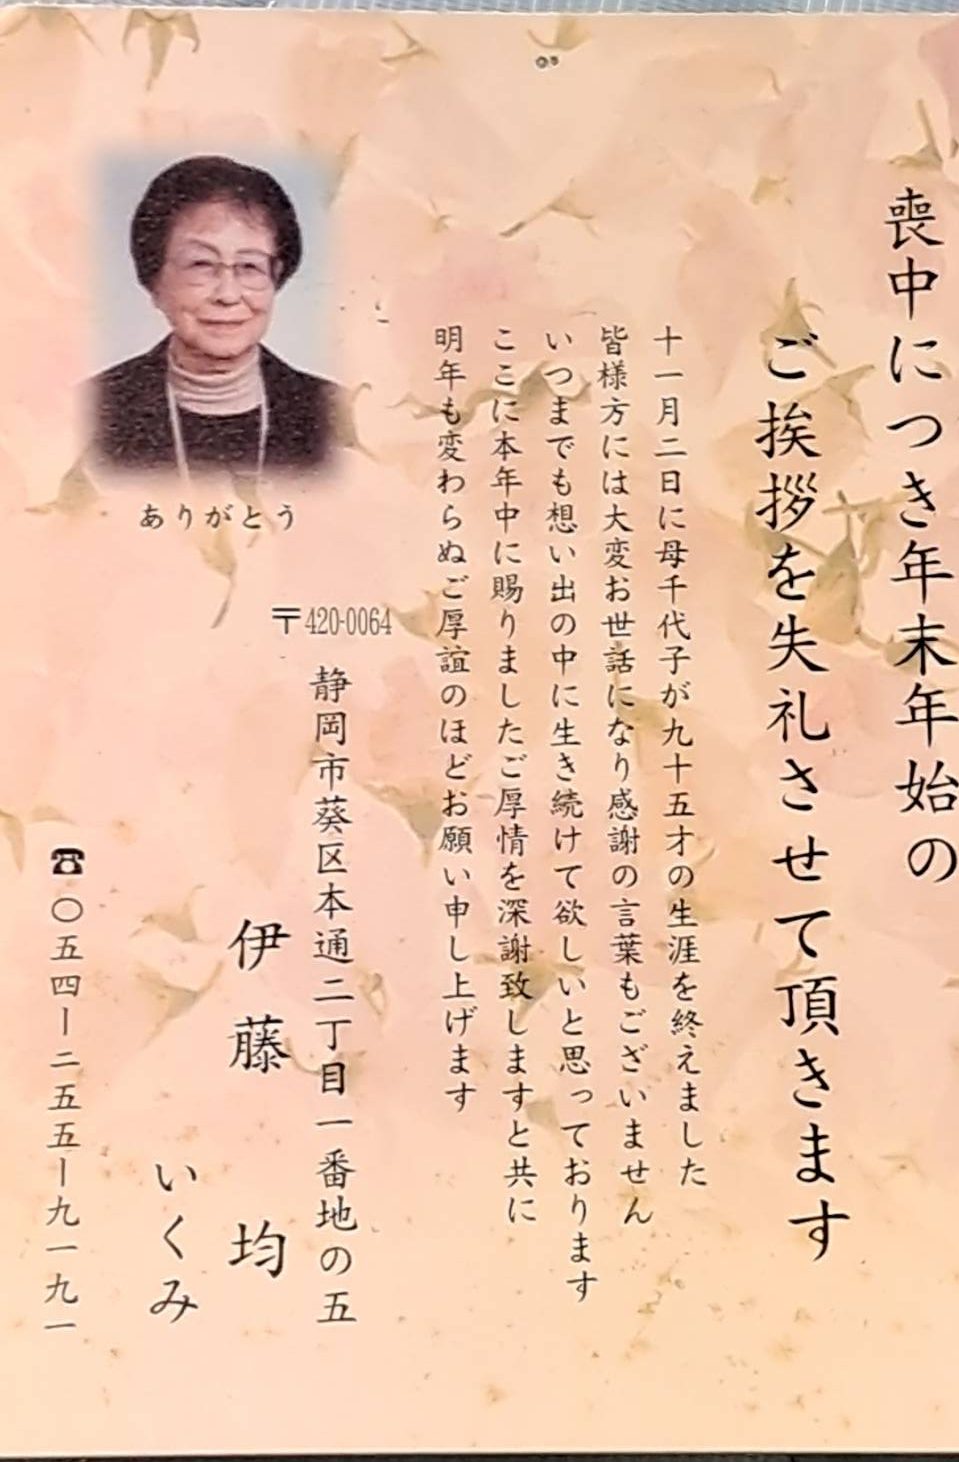 喪中につき年末年始の
ご挨拶を失礼させて頂きます
十一月二日に母千代子が九十五才の生涯を終えました
皆様方には大変お世話になり感謝の言葉もございません
いつまでも想い出の中に生き続けて欲しいと思っております
ここに本年中に賜りましたご厚情を深謝致しますと共に
明年も変わらぬご厚誼のほどお願い申し上げます
ありがとう
〒420-0064
静岡市葵区本通二丁目一番地の五
伊藤 均
いくみ
☎〇五四ー二五五ー九一九一